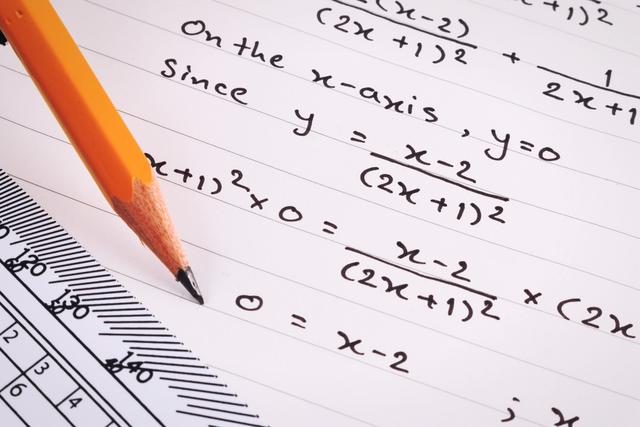 (x-2)
(2x+1)² + 1
2x+1
x+1)²
On the x-axis, y=0
Since y = x-2
(2x+1)²
x+1)² × 0 = x-2
(2x+1)² × (2x
0 = x-2
; x
120
130
140
2
3
4
6